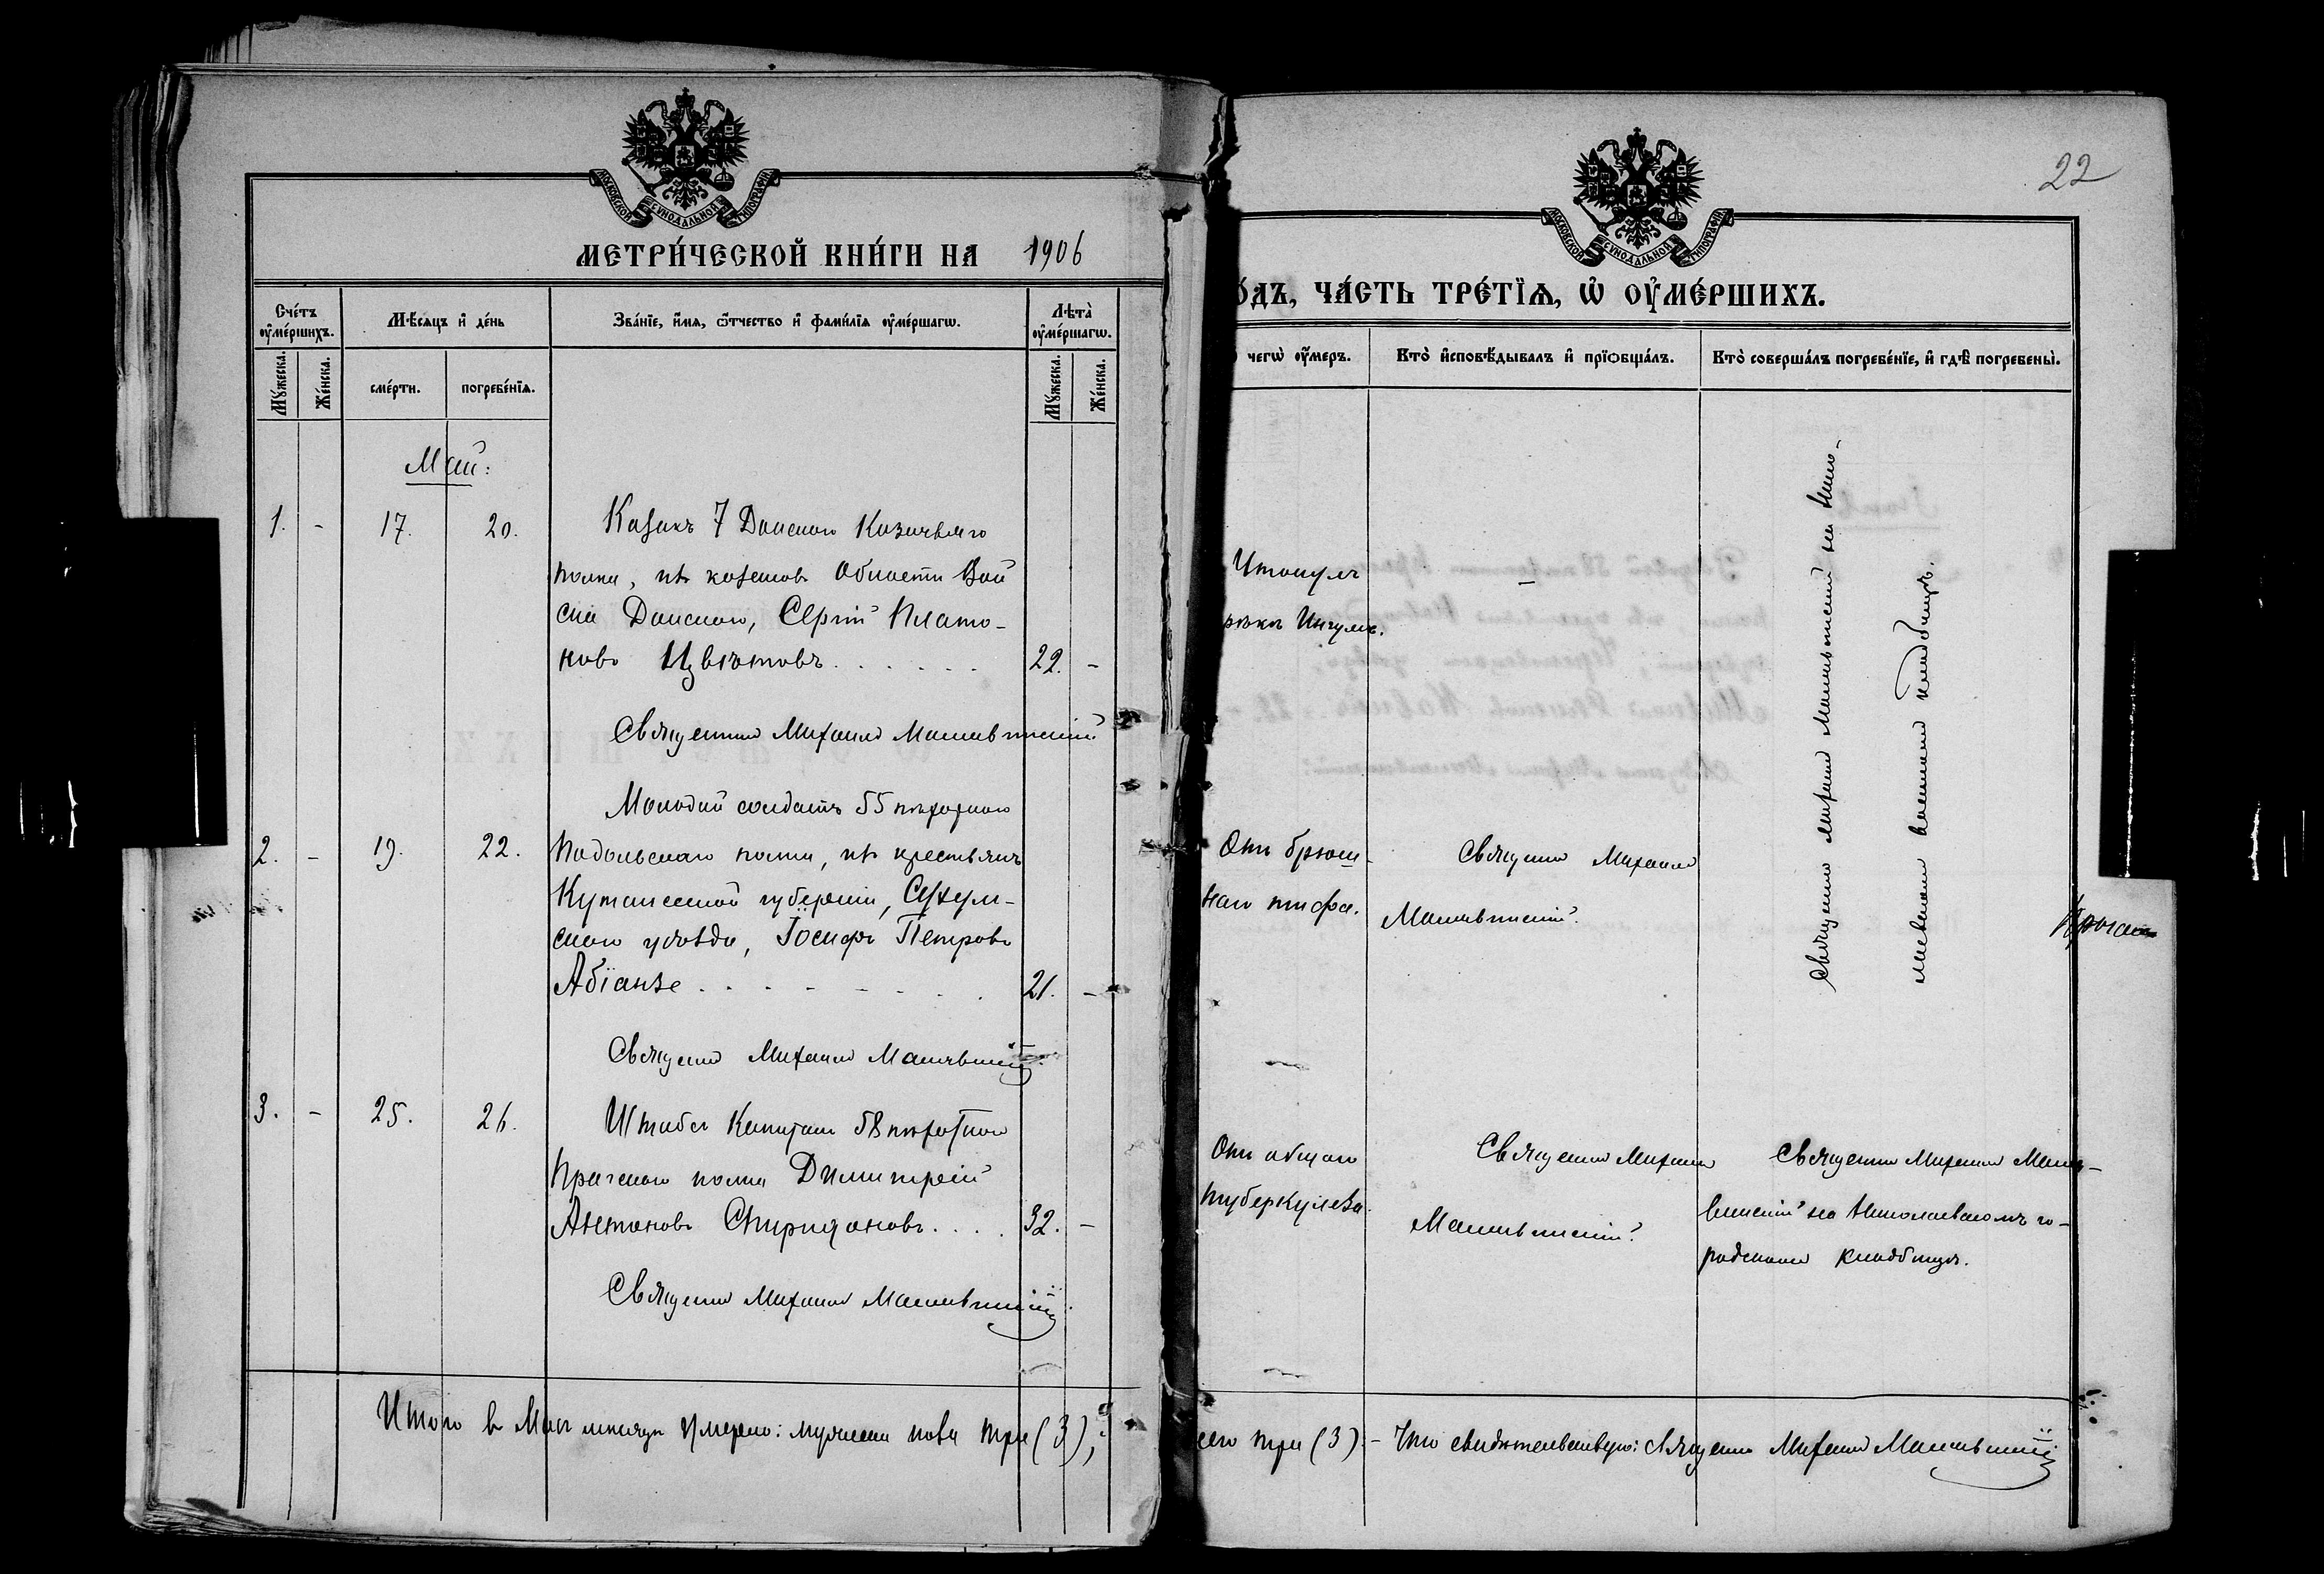 МОСКОВСКОЙ СУНОДАЛЬНОЙ ТИПОГРАФІИ
МЕТРИ́ЧЕСКОЙ КНИ́ГИ НА 1906
Сче́тъ оу҆ме́ршихъ.
Му́жеска.
Же́нска.
Мѣ́сяцъ и҆ де́нь
сме́рти.
погребе́нїѧ.
Зва́нїе, и҆́мя, ѻ҆́тчество и҆ фами́лїя оу҆ме́ршагѡ.
Лѣта̀ оу҆ме́ршагѡ.
Му́жеска.
Же́нска.
Май:
1. - 17. 20. Казакъ 7 Донскаго Казачьяго
полка, изъ казаковъ Области Вой
ска Донскаго, Сергій Плато-
новъ Цвѣтовъ . . . . . . 29. -
Священникъ Михаилъ
Молодой солдатъ 55 пѣхотнаго
2. - 19. 22. Подольскаго полка, изъ крестьянъ
Кутаисской губерніи, Сухум-
скаго уѣзда, Іосифъ Петровъ
Абіанзе . . . . . . . . 21. -
Священникъ Михаилъ
3. - 25. 26. Штабсъ Капитанъ 58 пѣхотнаго
Прагскаго полка Димитрій
Антоновъ Спиридоновъ . . . . 32. -
Священникъ Михаилъ
Итого въ Маѣ мѣсяцѣ умерло: мужеска пола три (3);
22
МОСКОВСКОЙ СУНОДАЛЬНОЙ ТИПОГРАФІИ
о́дъ, ча́сть тре́тїѧ, ѡ҆ оу҆ме́ршихъ.
чегѡ̀ оу҆́меръ.
Кто̀ и҆сповѣ́дывалъ и҆ прїѡбща́лъ.
Кто̀ соверша́лъ погребе́нїе, и҆ гдѣ̀ погребены̀.
Утонулъ –
рѣкѣ Ингулѣ.
Священникъ Михаилъ на Нико-
лаевскомъ военномъ кладбищѣ.
Отъ брюш-
наго тифа.
Священникъ Михаилъ
Отъ общаго
туберкулеза.
Священникъ Михаилъ
Священникъ Михаилъ
на Николаевскомъ го-
родскомъ кладбищѣ.
сего три (3). – Что свидѣтельствую: Священникъ Михаилъ